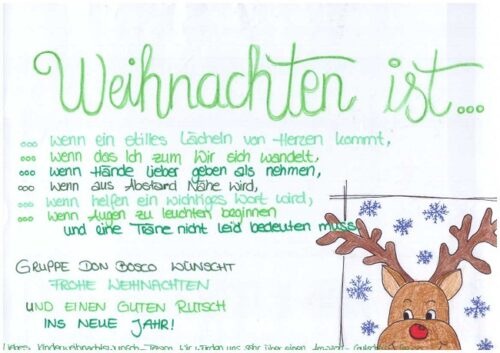 Weihnachten ist...
... wenn ein stilles Lächeln von Herzen kommt,
... wenn das Ich zum Wir sich wandelt,
... wenn Hände lieber geben als nehmen,
... wenn aus Abstand Nähe wird,
... wenn helfen ein wichtiges Wort wird,
... wenn Augen zu leuchten beginnen
und eine Träne nicht Leid bedeuten muss
GRUPPE DON BOSCO WÜNSCHT
FROHE WEIHNACHTEN
UND EINEN GUTEN RUTSCH
INS NEUE JAHR!